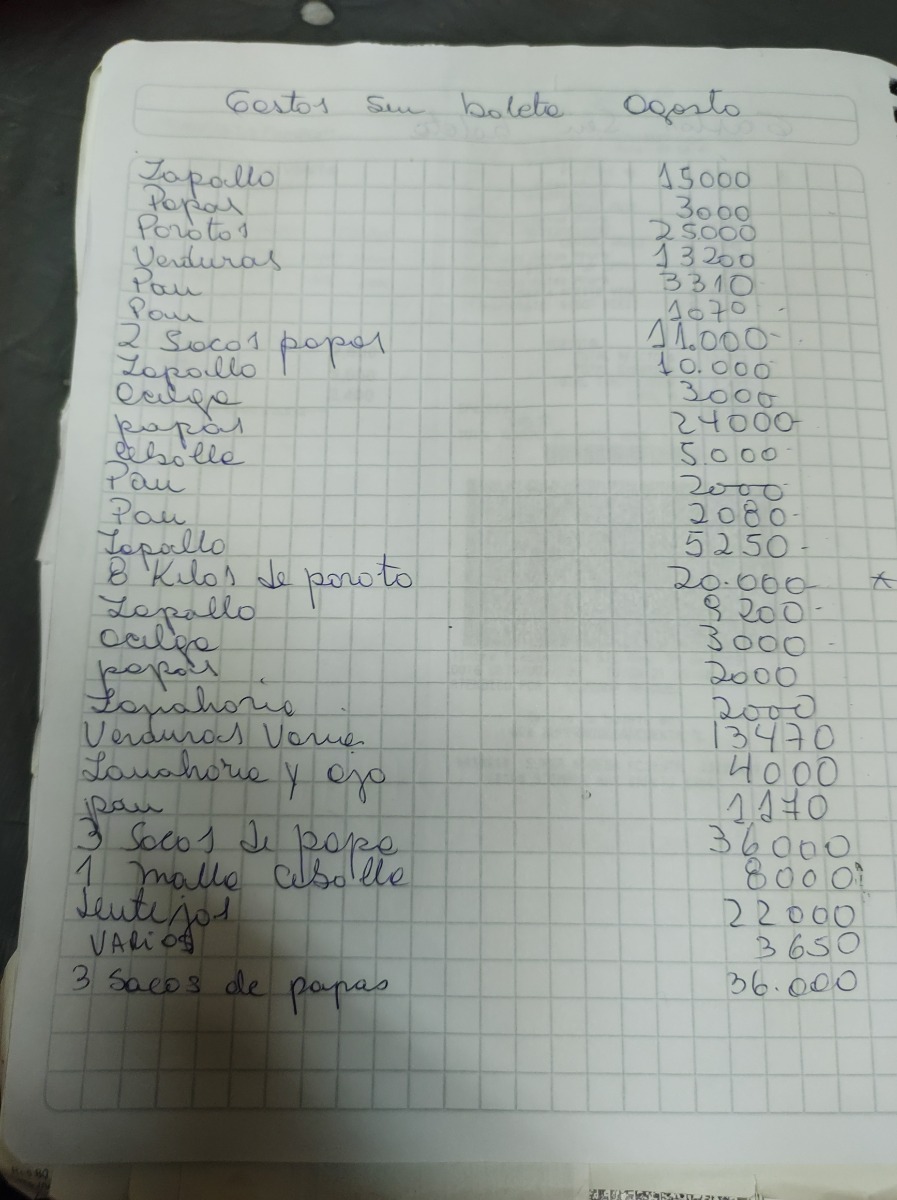 Gastos sin boleta Agosto
Zapallo 15000
Papas 3000
Porotos 25.000
Verduras 13200
Pan 3310
Pan 1070-
2 Sacos papas 11.000-
Zapallo 10.000
Acelga 3000
papas 24000
Cebolla 5.000
Pan 2000
Pan 2080-
Zapallo 5250-
8 Kilos de poroto 20.000 *
Zapallo 9200-
Acelga 3000
papas 2000
Zanahoria 2000
Verduras Varia 13470
Zanahoria y ajo 4000
pan 1170
3 Sacos de papa 36000
1 malla cebolla 8000
Lentejas 22000
VARIOS 3650
3 Sacos de papas 36.000